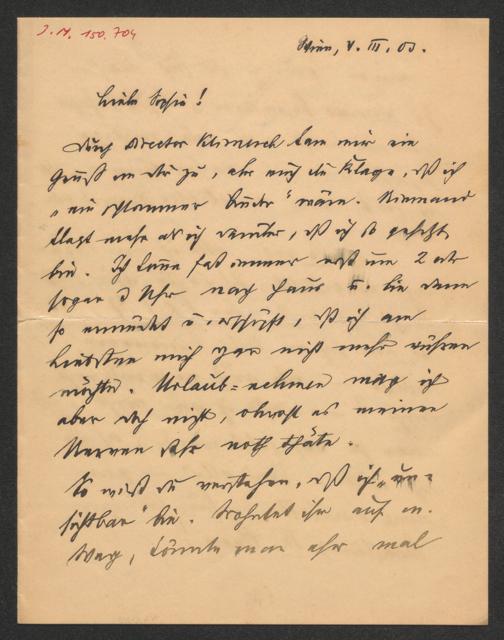 J. N. 150.704
Wien, V. III. 03.
Liebe Sophie!
Durch Director Klimesch kam mir ein
Gruß von dir zu, aber auch die Klage, daß ich
„ein schlimmer Bruder" wäre. Niemand
klagt mehr als ich darüber, daß ich so gehetzt
bin. Ich kann fast immer erst um 2 oder
sogar 3 Uhr nach Haus u. bin dann
so ermüdet u. erschöpft, daß ich am
Liebsten mich gar nicht mehr rühren
möchte. Urlaub=nehmen mag ich
aber doch nicht, obwohl es meinen
Nerven sehr noth thäte.
So wirst du verstehen, daß ich „un=
sichtbar" bin. Wohntet ihr auf m.
Weg, könnte man eher mal